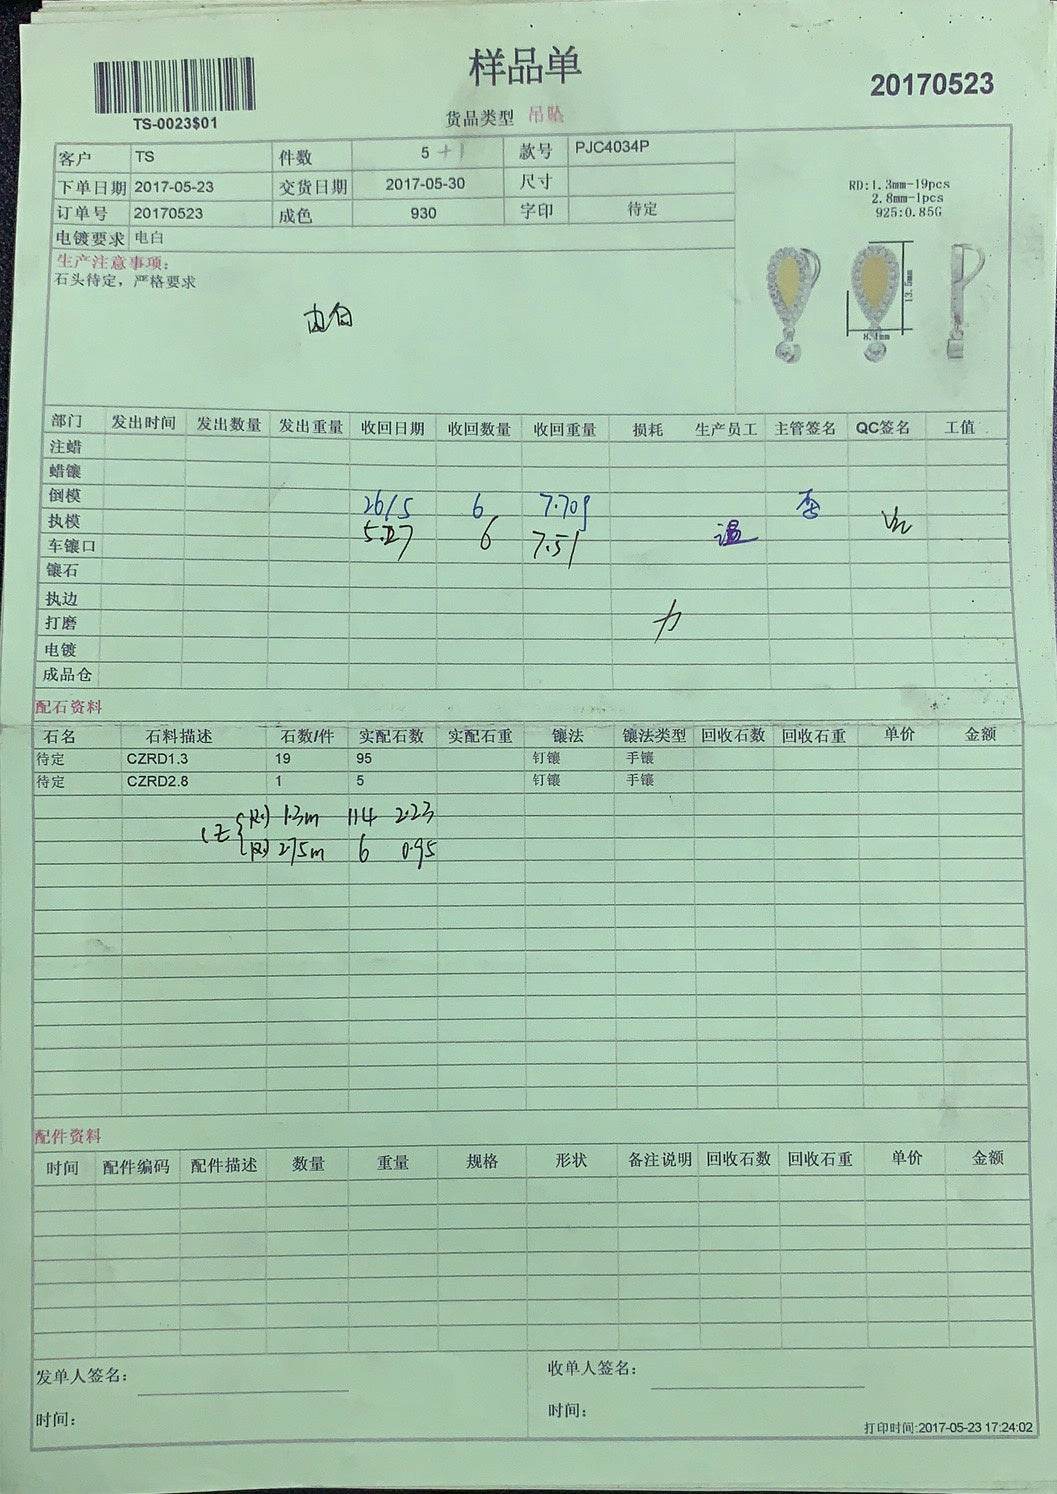 样品单
20170523
TS-0023$01
货品类型 吊坠
客户 TS 件数 5 +1 款号 PJC4034P
下单日期 2017-05-23 交货日期 2017-05-30 尺寸
订单号 20170523 成色 930 字印 待定
电镀要求 电白
生产注意事项:
石头待定，严格要求
RD:1.3mm-19pcs
2.8mm-1pcs
925:0.85G
13.5mm
8.1mm
部门 发出时间 发出数量 发出重量 收回日期 收回数量 收回重量 损耗 生产员工 主管签名 QC签名 工值
注蜡
蜡镶
倒模 26/5 6 7.70g 李
执模 5.27 6 7.51 温
车镶口
镶石
执边
打磨
电镀
成品仓
配石资料
石名 石料描述 石数/件 实配石数 实配石重 镶法 镶法类型 回收石数 回收石重 单价 金额
待定 CZRD1.3 19 95 钉镶 手镶
待定 CZRD2.8 1 5 钉镶 手镶
CZ 1.3m 114 2.23
2.75m 6 0.95
配件资料
时间 配件编码 配件描述 数量 重量 规格 形状 备注说明 回收石数 回收石重 单价 金额
发单人签名: 收单人签名:
时间: 时间:
打印时间:2017-05-23 17:24:02